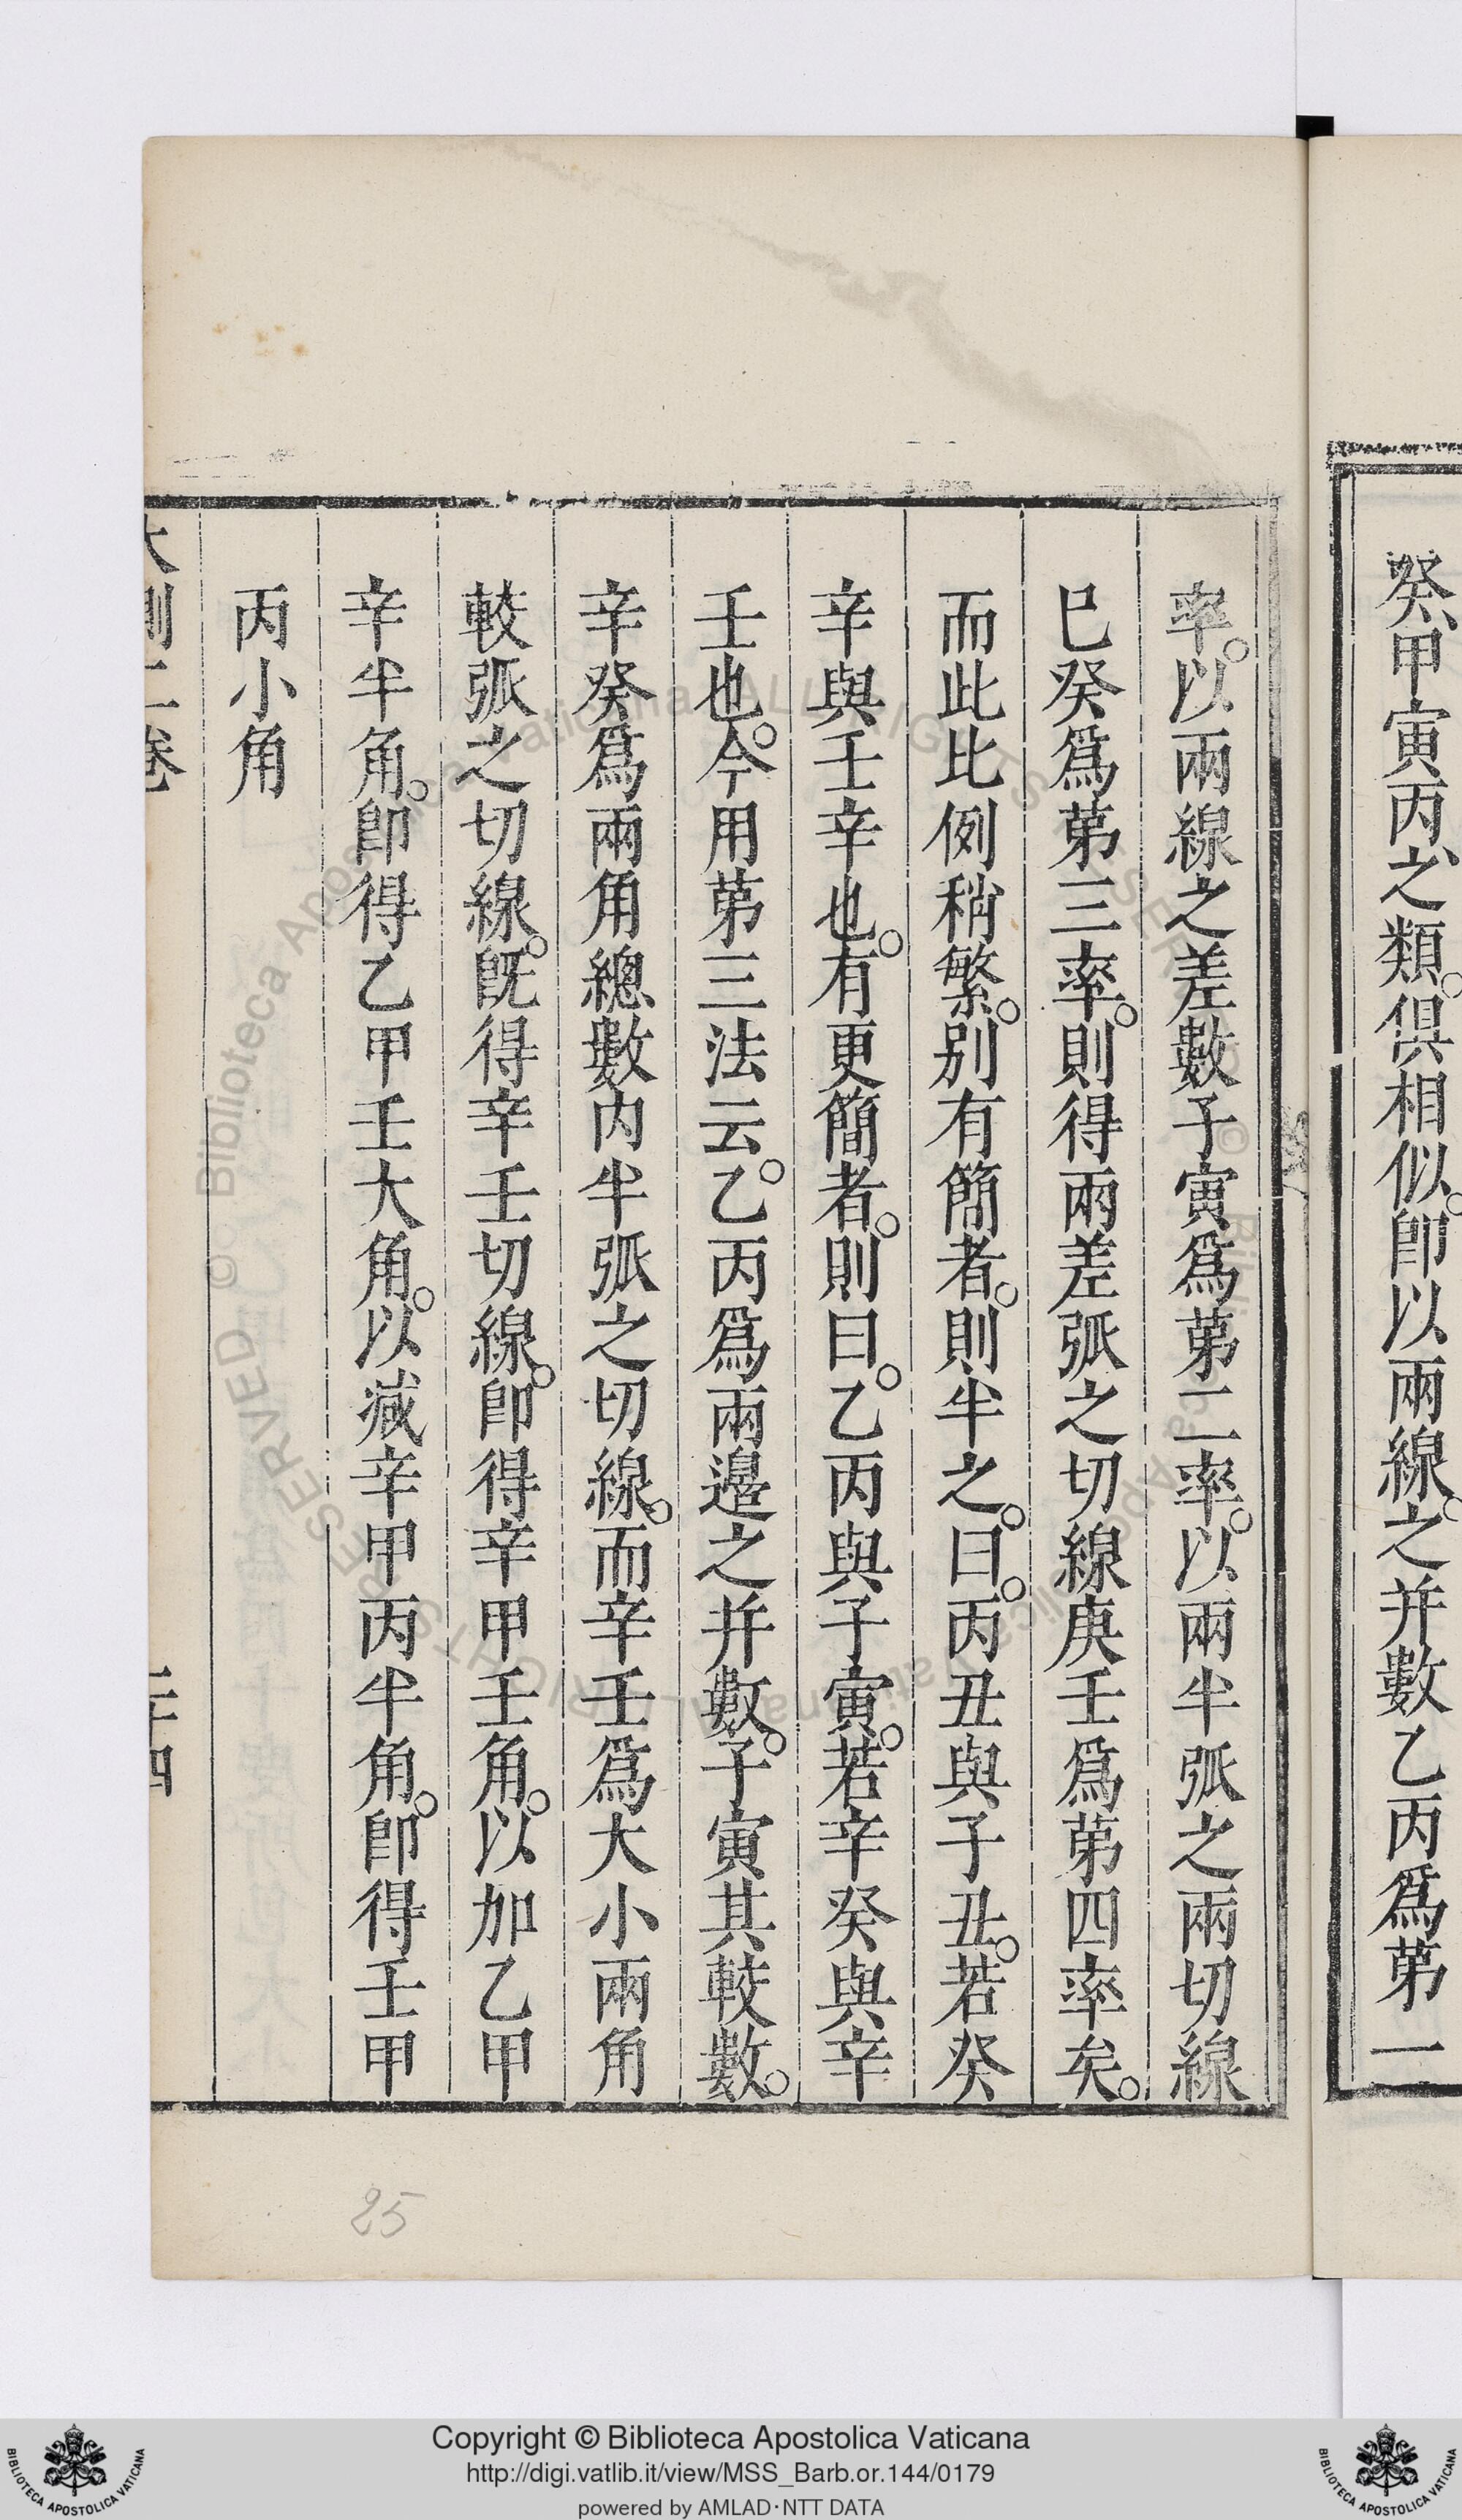 癸、甲寅丙、之類。俱相似。卽以兩線。之并數乙丙爲第一
率。以兩線之差數子寅爲第二率。以兩半弧之兩切線
巳癸爲第三率。則得兩差弧之切線庚壬爲第四率矣。
而此比例稍繁。別有簡者。則半之。曰。丙丑與子丑。若癸
辛與壬辛也。有更簡者。則曰。乙丙與子寅。若辛癸與辛
壬也。今用第三法云。乙丙爲兩邊之并數。子寅其較數。
辛癸爲兩角總數內半弧之切線。而辛壬爲大小兩角
較弧之切線。旣得辛壬切線。卽得辛甲壬角。以加乙甲
辛半角。卽得乙甲壬大角。以减辛甲丙半角。卽得壬甲
丙小角
大測二卷 二十四
25
Copyright © Biblioteca Apostolica Vaticana
http://digi.vatlib.it/view/MSS_Barb.or.144/0179
powered by AMLAD·NTT DATA